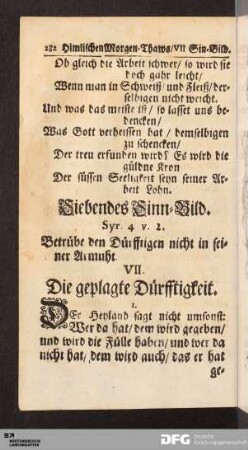 282 Himlischen Morgen-Thaws/ VII Sin-Bild.
Ob gleich die Arbeit schwer/ so wird sie
doch gahr leicht/
Wenn man in Schweiß/ und Fleiß/ der-
selbigen nicht weicht.
Und was das meiste ist/ so lasset uns be-
dencken/
Was Gott verheissen hat/ demselbigen
zu schencken/
Der treu erfunden wird? Es wird die
güldne Kron
Der süssen Seeligkeit seyn seiner Ar-
beit Lohn.
Siebendes Sinn-Bild.
Syr. 4 v. 2.
Betrübe den Dürfftigen nicht in sei-
ner Armuht.
VII.
Die geplagte Dürfftigkeit.
1.
DEr Heyland sagt nicht umsonst:
Wer da hat/ dem wird gegeben/
und wird die Fülle haben/ und wer da
nicht hat/ dem wird auch/ das er hat
ge-
DFG Deutsche
Forschungsgemeinschaft